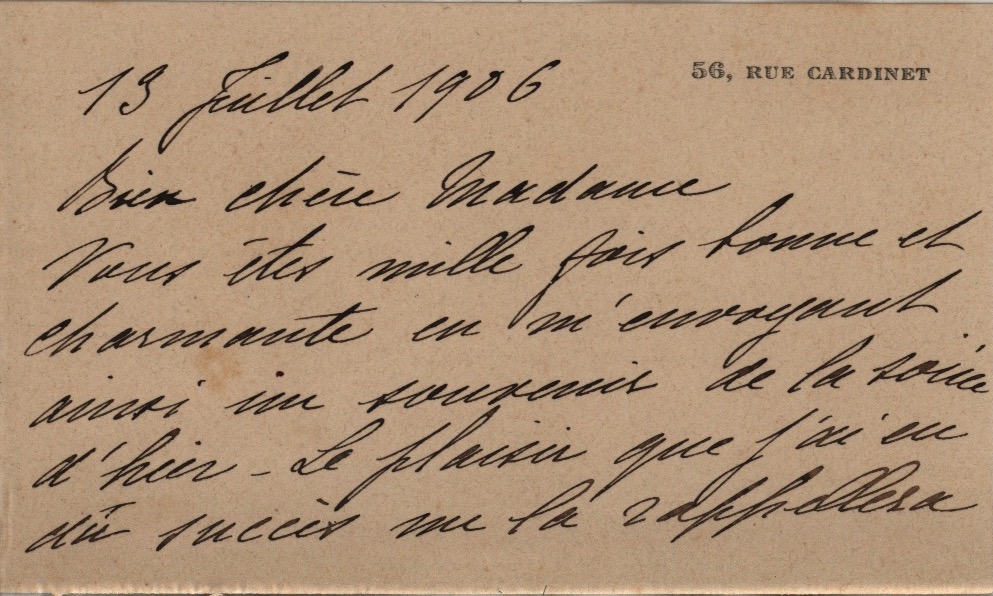 56, RUE CARDINET
13 Juillet 1906
Bien chère Madame
Vous êtes mille fois bonne et
charmante en m'envoyant
ainsi un souvenir de la soirée
d'hier - Le plaisir que j'ai eu
dû succès me la rappellera